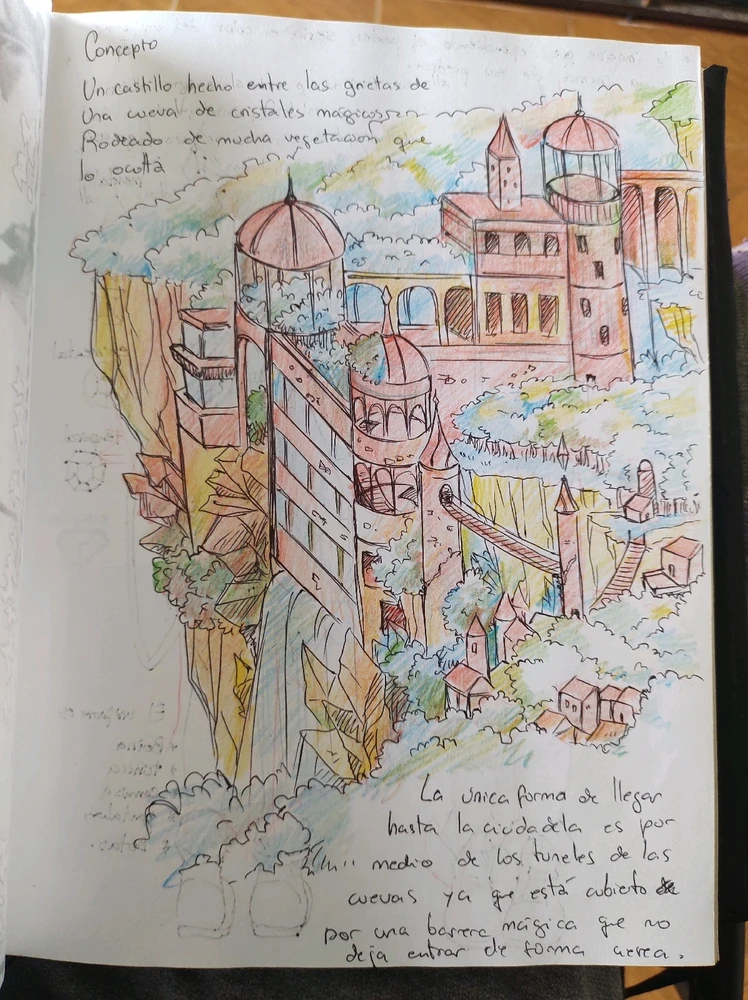 Concepto
Un castillo hecho entre las grietas de
Una cueva de cristales mágicos
Rodeado de mucha vegetacion que
lo oculta
La única forma de llegar
hasta la ciudadela es por
medio de los tuneles de las
cuevas ya que está cubierto
por una barrera mágica que no
deja entrar de forma aerea.